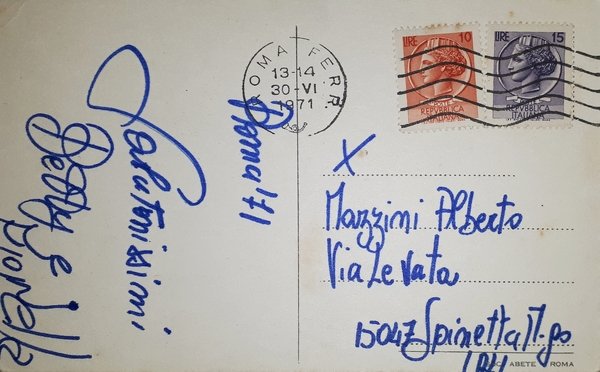 ROMA FERR
13-14
30-VI
1971
LIRE 10
POSTE
REPVBBLICA
ITALIANA
LIRE 15
REPVBBLICA
ITALIANA
Roma '71
Salutonissimi
Betty e
Fiorella
X
Mazzini Alberto
Via Levata
15047 Spinetta M.go
ABETE - ROMA